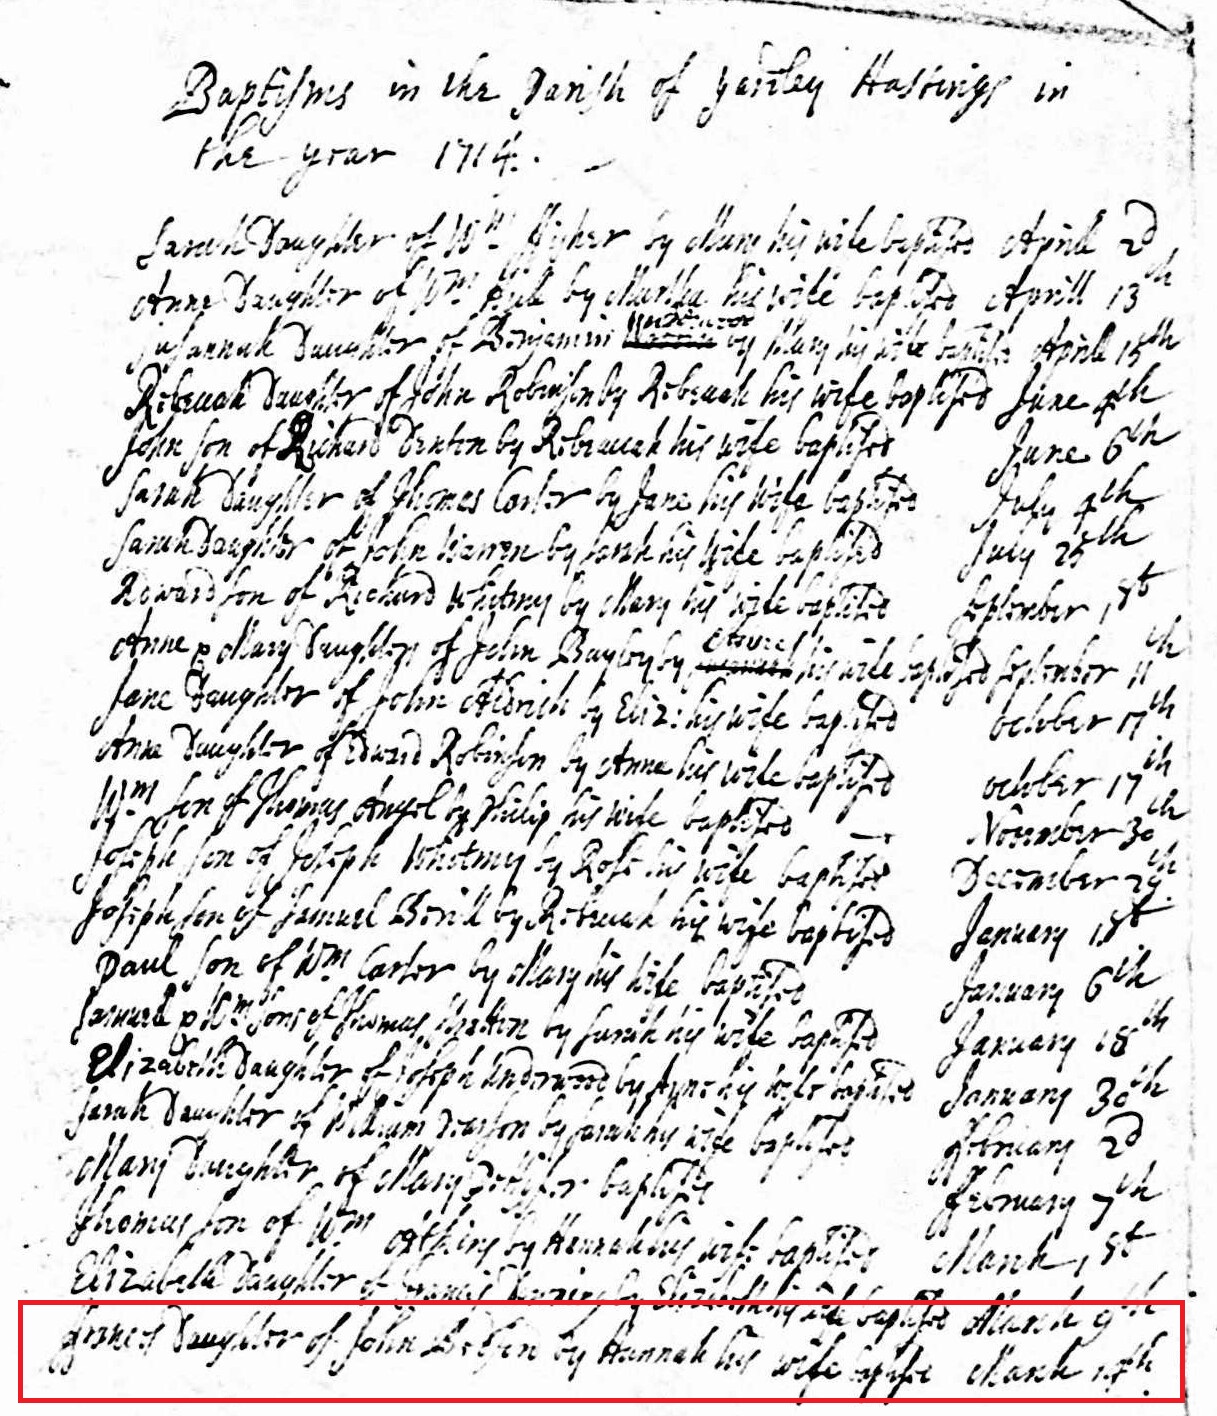 Baptisms in the Parish of Yardley Hastings in
the year 1714.
Sarah Daughter of Wm by Mary his wife baptised Aprill 2d
Anne Daughter of Wm by Martha his wife baptised Aprill 13th
Susannah Daughter of Benjamin by Mary his wife baptised Aprill 15th
Rebeccah Daughter of John Robinson by Rebeccah his wife baptised June 4th
John son of Richard Denton by Rebeccah his wife baptised June 6th
Sarah Daughter of Thomas Carter by Jane his wife baptised July 4th
Sarah Daughter of John Warren by Sarah his wife baptised July 25th
Edward son of Richard Whitmy by Mary his wife baptised September 1st
Anne & Mary Daughters of John Bayley by his wife baptised September 11th
Jane Daughter of John Aldrich by Eliz: his wife baptised October 17th
Anne Daughter of Edward Robinson by Anne his wife baptised October 17th
Wm son of Thomas Angel by Philip his wife baptised November 30th
Joseph son of Joseph Whitmy by Rose his wife baptised December 29th
Joseph son of Samuel by Rebeccah his wife baptised January 1st
Paul son of Wm Carter by Mary his wife baptised January 6th
Samuel & Wm sons of Thomas by Sarah his wife baptised January 18th
Elizabeth Daughter of Joseph Underwood by his wife baptised January 30th
Sarah Daughter of William Pearson by Sarah his wife baptised February 2d
Mary Daughter of Mary baptised February 7th
Thomas son of Wm Atkins by Hannah his wife baptised March 1st
Elizabeth Daughter of Francis by Elizabeth his wife baptised March 9th
Frances Daughter of John by Hannah his wife baptised March